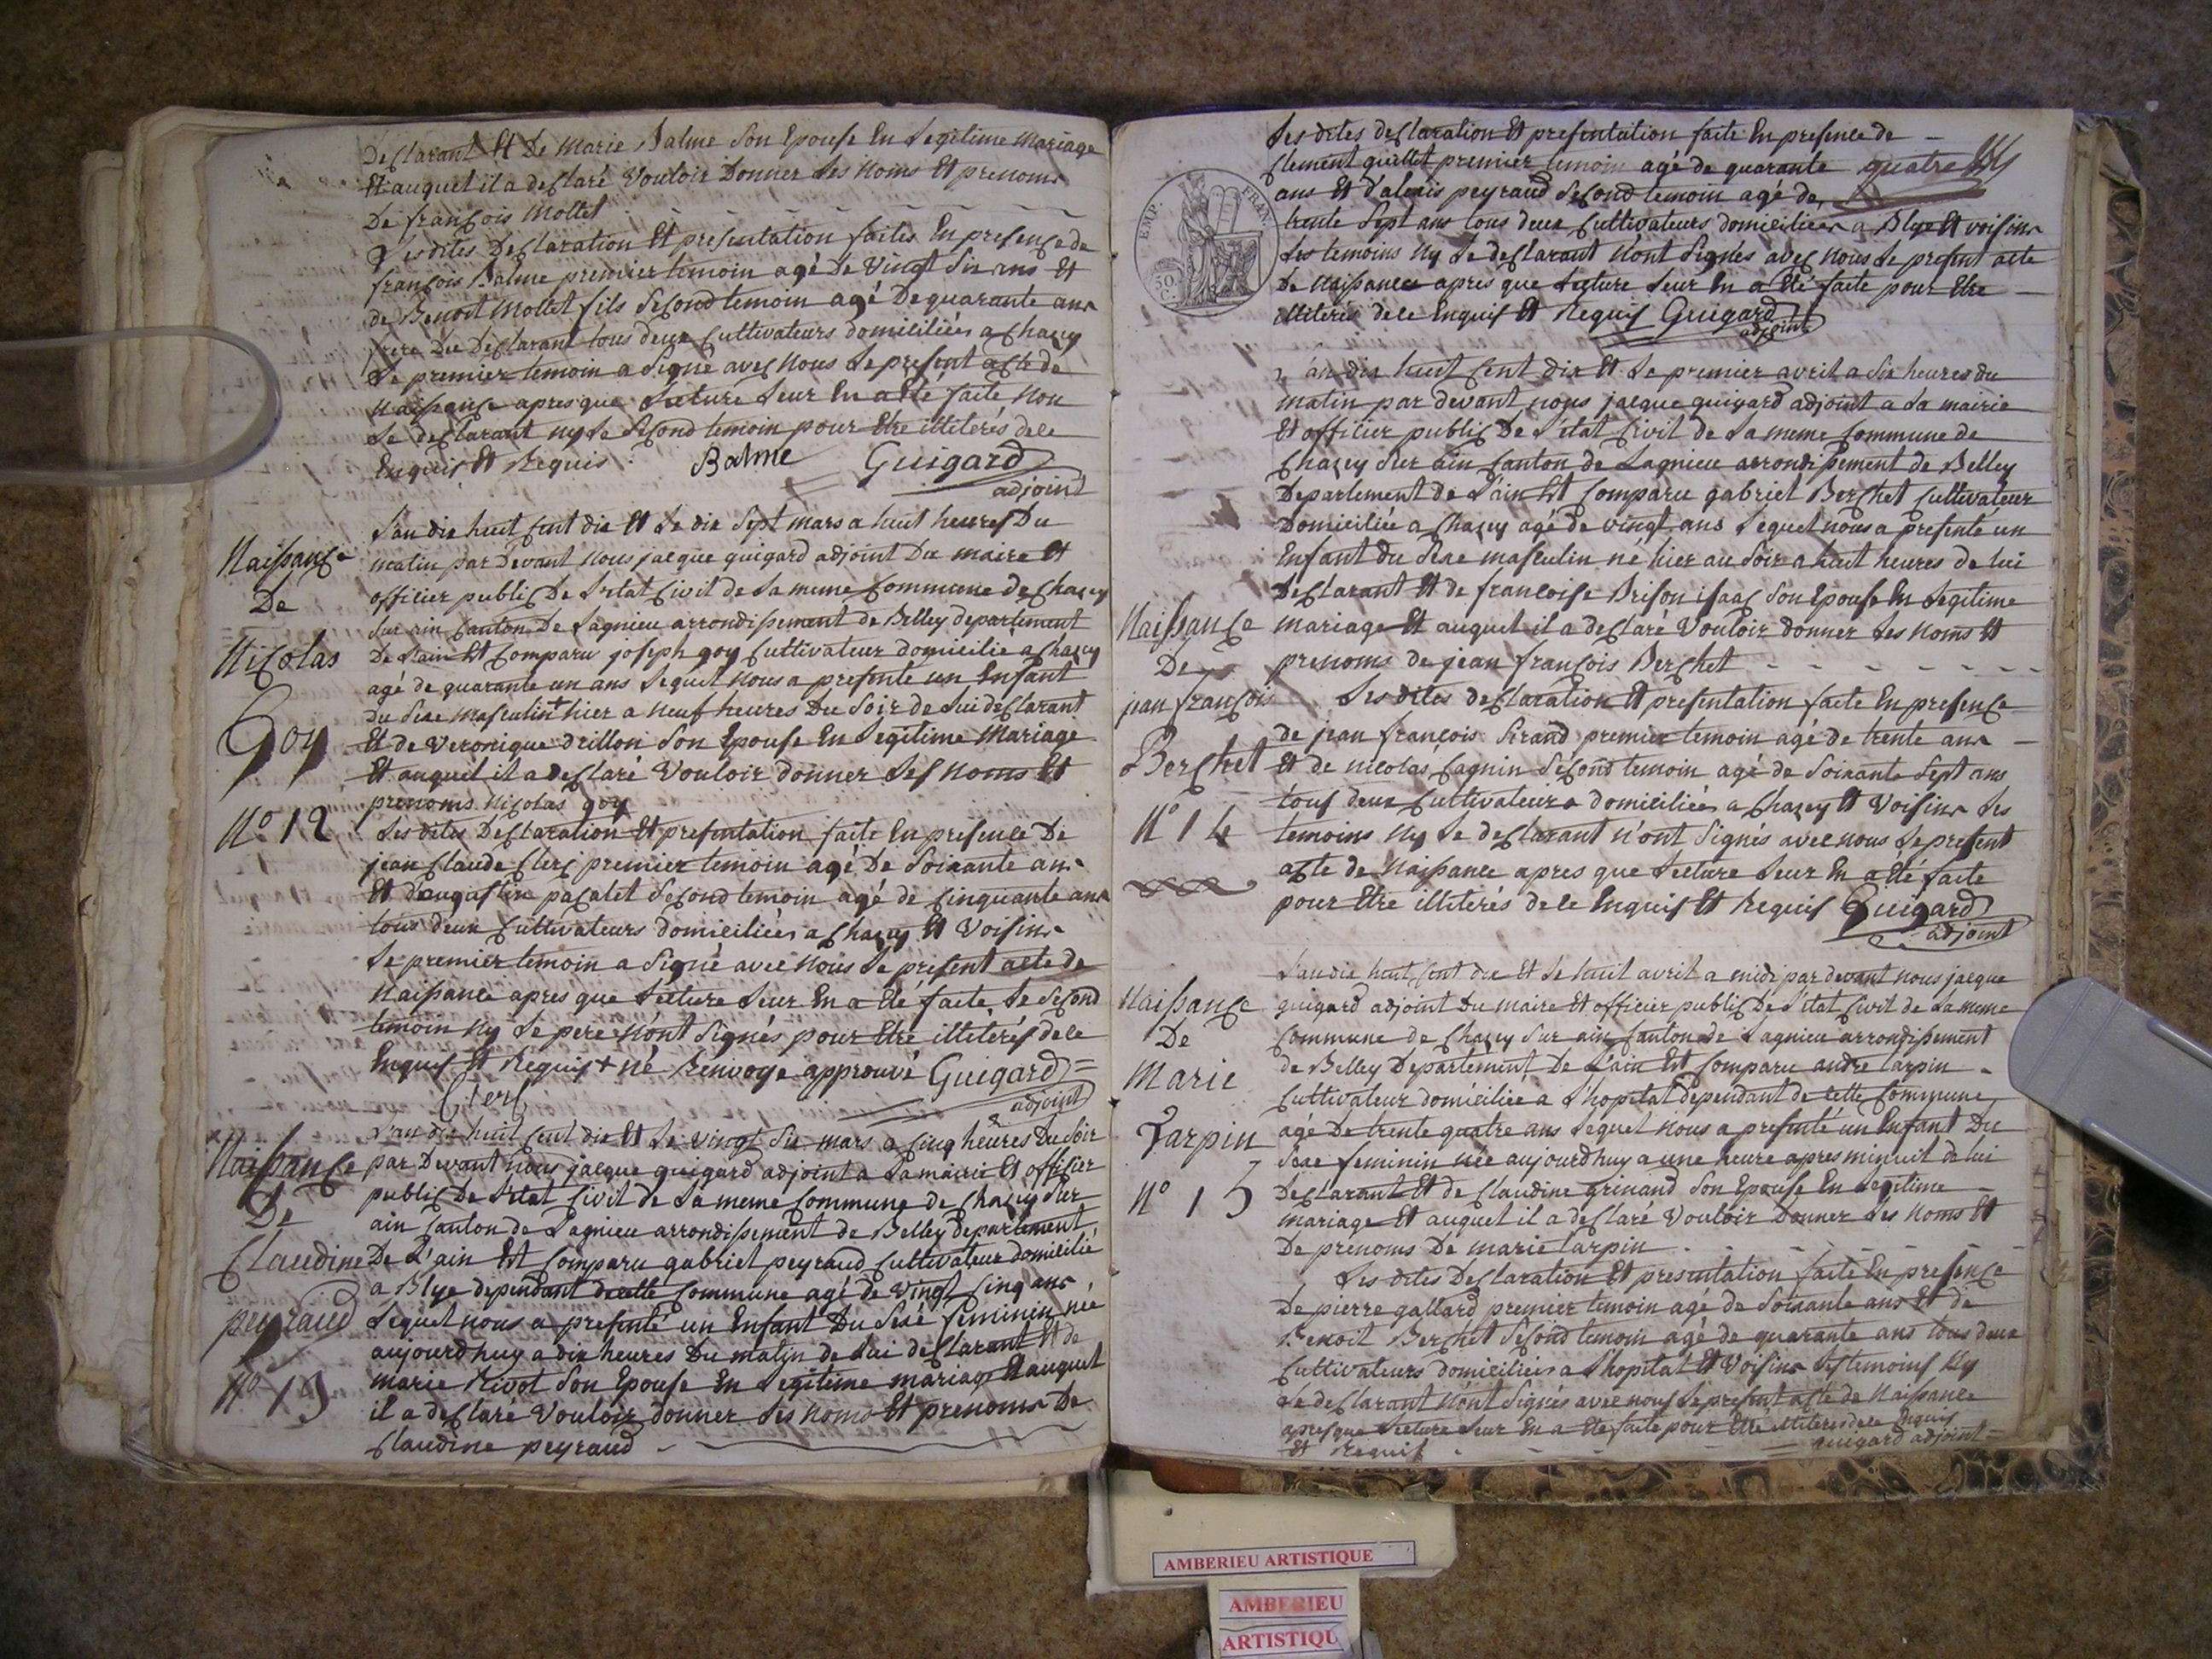 Desclarant Et De Marie Balme Son Epouse En Legitime Mariage
Et auquel il a desclaré Vouloir Donner Les Noms Et prenoms
De françois Mollet
Lesdites Desclaration Et presentation faites En presence de
françois Balme premier temoin agé De Vingt Six ans Et
de Benoit Mollet fils Second temoin agé De quarante ans
frere Du Desclarant tous deux Cultivateurs domiciliés a Chazey
Le premier temoin a Signé avec Nous Le present acte de
Naissance apres que Lecture Leur En a Eté faite Non
Le desclarant ny Le Second temoin pour Etre illiterés de le
Enquis Et Requis Balme Guigard
adjoint
Naissance
De
Nicolas
Goy
N° 12
L'an dix huit Cent dix Et Le dix Sept mars a huit heures Du
matin par Devant Nous jacque guigard adjoint Du maire Et
officier public De L'etat Civil de La meme Commune de Chazey
Sur ain Canton De Lagnieu arrondissement de Belley departement
De L'ain Est Comparu joseph goy Cultivateur domicilié a Chazey
agé de quarante un ans Lequel Nous a presenté un Enfant
du Sexe Masculin + hier a Neuf heures Du Soir de Lui desclarant
Et de Veronique drillon Son Epouse En Legitime Mariage
Et auquel il a desclaré Vouloir donner Les Noms Et
prenoms Nicolas goy
Lesdites Desclaration Et presentation faite En presence De
jean Claude Clerc premier temoin agé De Soixante ans
Et d'augustin pacalet Second temoin agé de Cinquante ans
tous deux Cultivateurs domiciliés a Chazey Et Voisins
Le premier temoin a Signé avec Nous Le present acte de
Naissance apres que Lecture Leur En a Eté faite, Le Second
temoin Ny Le pere N'ont Signés pour Etre illiterés de le
Enquis Et Requis + né Renvoye approuvé Guigard
Clerc adjoint
Naissance
De
Claudine
peyraud
N° 13
L'an dix huit Cent dix Et Le Vingt Six mars a Cinq heures Du Soir
par Devant Nous jacque guigard adjoint a La mairie Et officier
public De L'etat Civil de La meme Commune de Chazey Sur
ain Canton de Lagnieu arrondissement de Belley departement
De L'ain Est Comparu gabriel peyraud Cultivateur domicilié
a Blye dependant de cette Commune agé de Vingt Cinq ans
Lequel nous a presenté un Enfant Du Sexe feminin née
aujourdhuy a dix heures Du matin de Lui desclarant Et de
marie Rivot Son Epouse En Legitime mariage Et auquel
il a desclaré Vouloir donner Les Noms Et prenoms De
Claudine peyraud
Les dites desclaration Et presentation faite En presence de
Clement quillet premier temoin agé de quarante quatre
ans Et d'alexis peyraud Second temoin agé de
trente Sept ans tous deux Cultivateurs domiciliés a Blye Et voisins
Les temoins Ny Le desclarant N'ont Signés avec Nous Le present acte
De Naissance apres que Lecture Leur En a Eté faite pour Etre
illiterés de le Enquis Et Requis Guigard
adjoint
EMP. FRAN.
50
Naissance
De
jean françois
Berchet
N° 14
L'an dix huit Cent dix Et Le premier avril a Six heures du
matin par devant nous jacque guigard adjoint a La mairie
Et officier public De L'etat Civil de La meme Commune de
Chazey Sur ain Canton de Lagnieu arrondissement de Belley
Departement de L'ain Est Comparu gabriel Berchet Cultivateur
Domicilié a Chazey agé de vingt ans Lequel nous a presenté un
Enfant du Sexe masculin né hier au Soir a huit heures de lui
Desclarant Et de francoise Brison isaac Son Epouse En Legitime
mariage Et auquel il a desclaré Vouloir donner Les Noms Et
prenoms de jean françois Berchet
Les dites desclaration Et presentation faite En presence
de jean françois Sirand premier temoin agé de trente ans
Et de nicolas Cagnin Second temoin agé de Soixante Sept ans
tous deux Cultivateurs domiciliés a Chazey Et Voisins Les
temoins Ny Le desclarant n'ont Signés avec nous Le present
acte de Naissance apres que Lecture Leur En a Eté faite
pour Etre illiterés de le Enquis Et Requis Guigard
adjoint
Naissance
De
Marie
Tarpin
N° 15
L'an dix huit Cent dix Et Le huit avril a midi par devant nous jacque
guigard adjoint Du maire Et officier public De L'etat Civil de La meme
Commune de Chazey Sur ain Canton de Lagnieu arrondissement
de Belley Departement De L'ain Est Comparu andre tarpin
Cultivateur domicilié a L'hopital dependant de cette Commune
agé De trente quatre ans Lequel Nous a presenté un Enfant Du
Sexe feminin née aujourdhuy a une heure apres minuit de lui
Desclarant Et de Claudine grinand Son Epouse En Legitime
mariage Et auquel il a desclaré Vouloir Donner Les Noms Et
De prenoms De marie tarpin
Les dites Desclaration Et presentation faite En presence
De pierre gallard premier temoin agé de Soixante ans Et de
Benoit Berchet Second temoin agé de quarante ans tous deux
Cultivateurs domiciliés a L'hopital Et Voisins Les temoins Ny
Le desclarant N'ont Signés avec nous Le present acte de Naissance
apres que Lecture Leur En a Eté faite pour Etre illiterés de le Enquis
Et Requis guigard adjoint
AMBERIEU ARTISTIQUE
AMBERIEU
ARTISTIQU